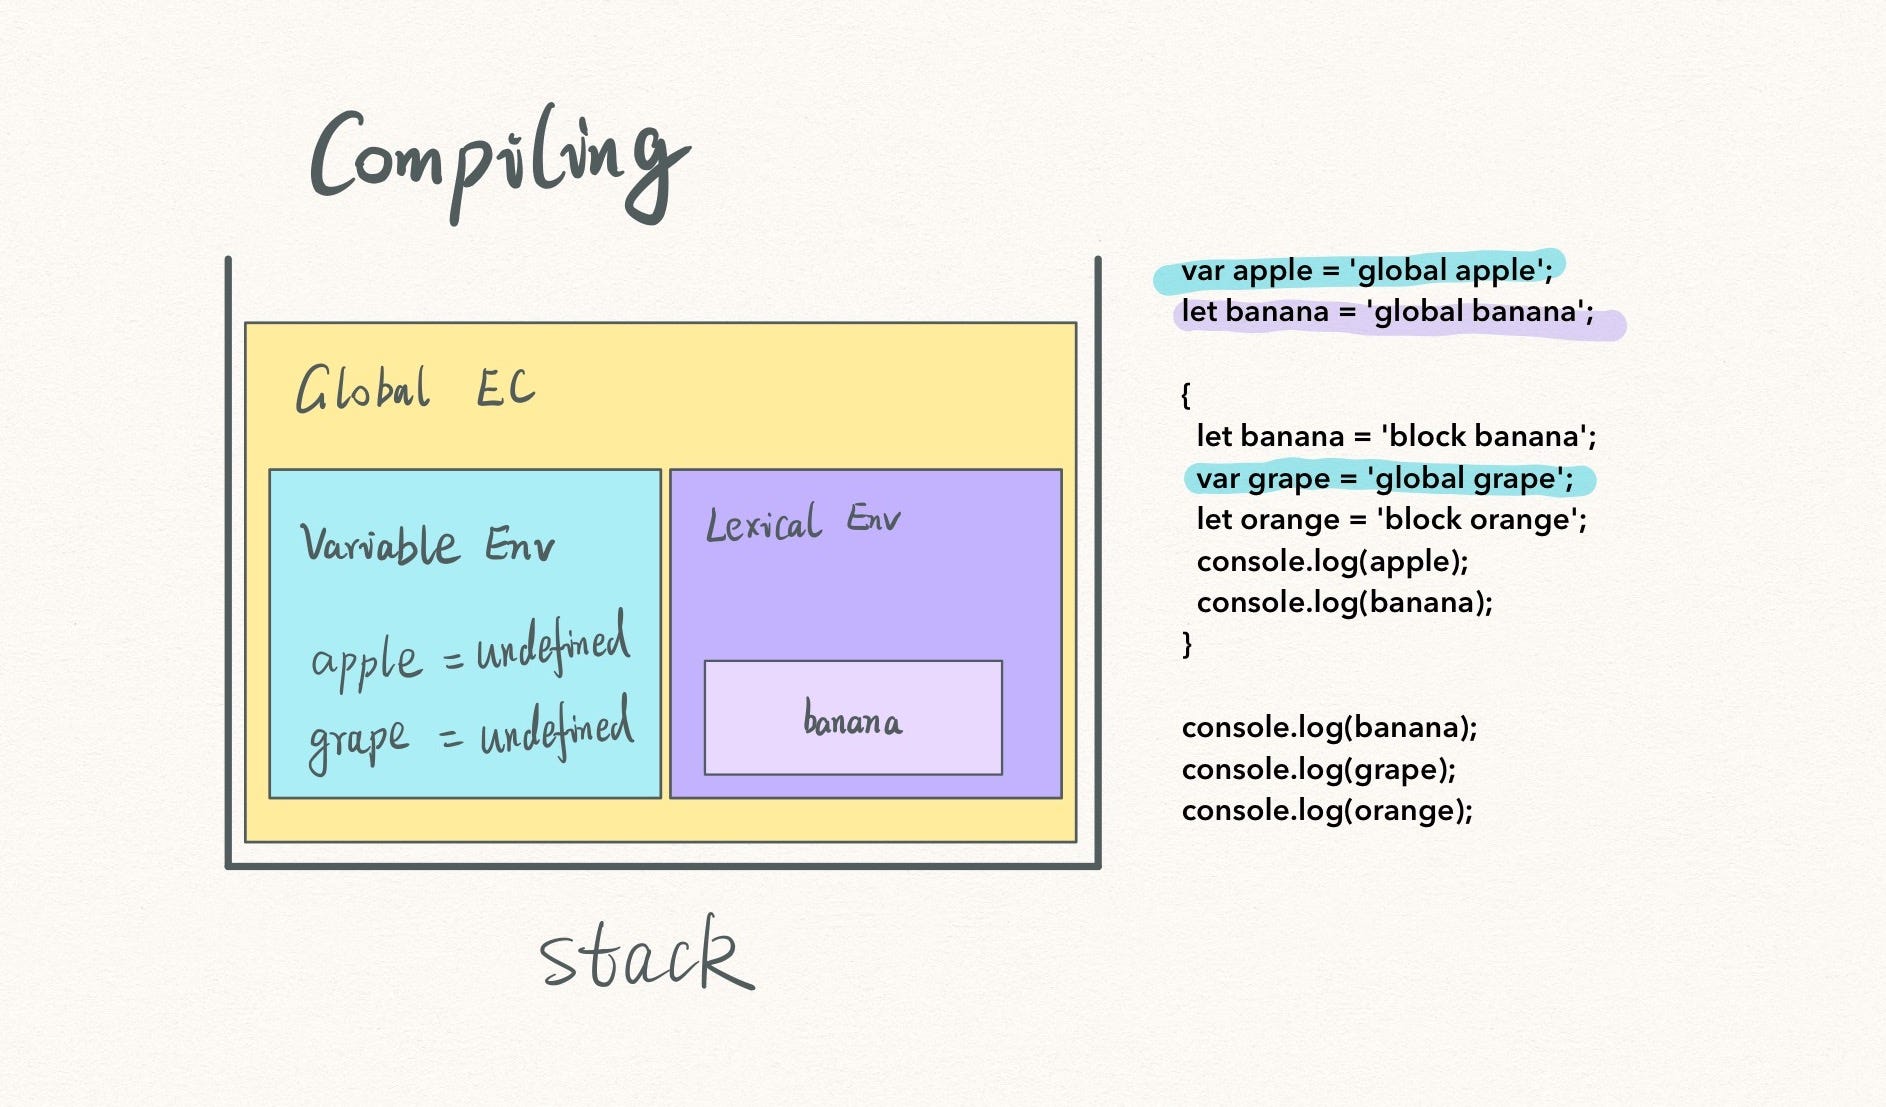 Compiling
Global EC
Variable Env
apple = undefined
grape = undefined
Lexical Env
banana
stack
var apple = 'global apple';
let banana = 'global banana';
{
let banana = 'block banana';
var grape = 'global grape';
let orange = 'block orange';
console.log(apple);
console.log(banana);
}
console.log(banana);
console.log(grape);
console.log(orange);